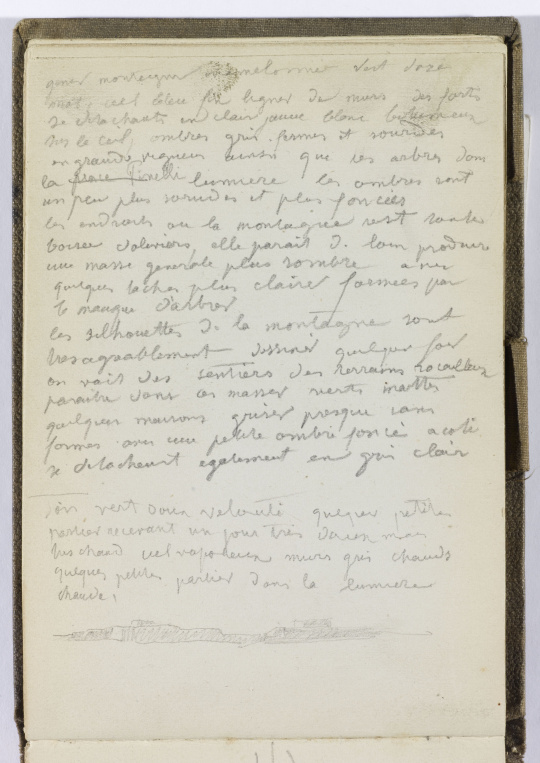 montagne mamelonnée vert doré
ciel bleu fin lignes de murs des forts
se detachants en clair jaune blanc lumineux
sur le ciel, ombres gris fermes et sourdes
en grande vigueur ainsi que les arbres dans
la lumiere les ombres sont
un peu plus sourdes et plus foncées
les endroits ou la montagne est toute
boisee d'oliviers, elle parait de loin produire
une masse generale plus sombre avec
quelques taches plus claire formees par
le manque d'arbres
les silhouettes de la montagne sont
tres agreablement dessinés quelques fois
on voit des sentiers des terrains rocailleux
paraitre dans ces masses verts inattes
quelques maisons grises presque sans
formes avec une petite ombre foncé a coté
se detachent egalement en gris clair
Ton vert doux velouté quelques petites
parties recevant un jour tres doux mais
tres chaud ciel vaporeux murs gris chauds
quelques petites parties dans la lumiere
chaude,